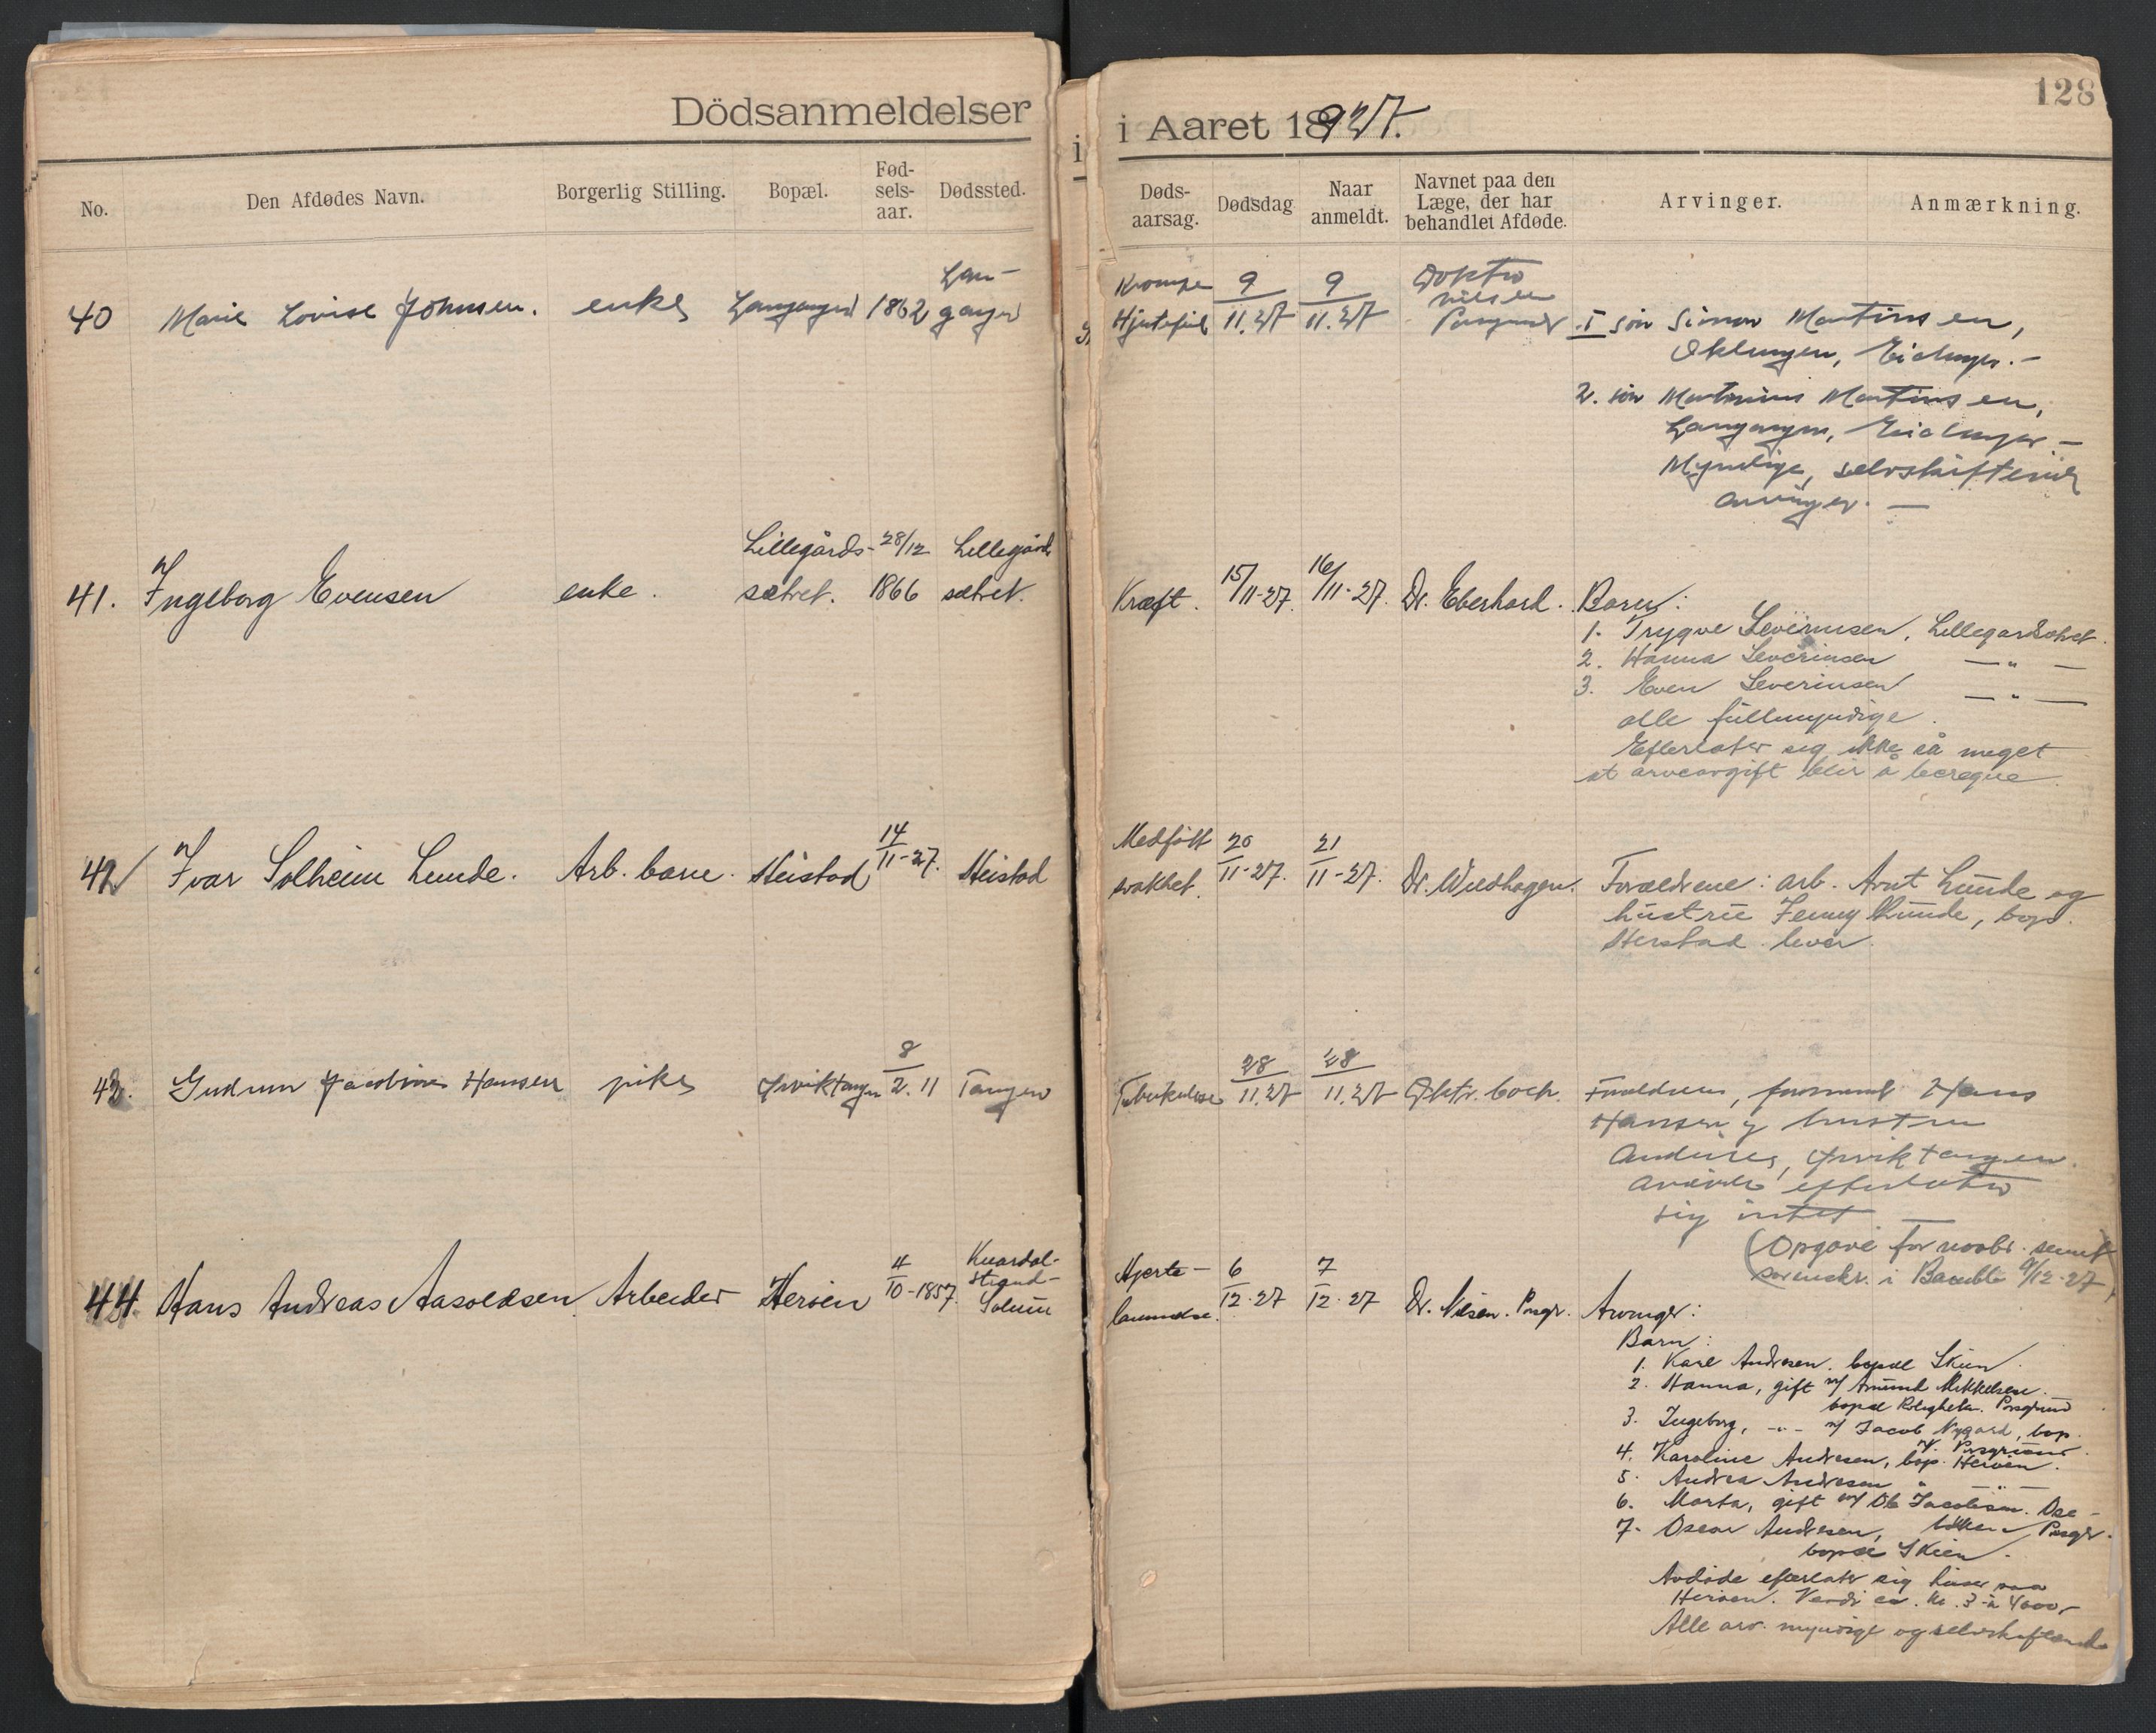 Dödsanmeldelser
i Aaret 1927.
128
No.
Den Afdødes Navn.
Borgerlig Stilling.
Bopæl.
Fød-
sels-
aar.
Dødssted.
Døds-
aarsag.
Dødsdag
Naar
anmeldt.
Navnet paa den
Læge, der har
behandlet Afdøde.
Arvinger.
Anmærkning.
40 Marie Lovise Johnsen. enke Langangen 1862
Lan-
gangen
Krampe
Hjertefeil
9/11.27
9/11.27
Doktor
Nilsen
Porsgrund
1 søn Simon Martinsen,
Oklungen, Eidanger. -
2. søn Martinius Martinsen,
Langangen, Eidanger -
Myndige, selvskiftende
arvinger. -
41. Ingeborg Evensen enke.
Lillegårds-
sætret.
28/12
1866
Lillegårds
sætret.
Kræft.
15/11-27.
16/11-27.
Dr. Eberhard.
Barn:
1. Trygve Severinsen, Lillegardsætret.
2. Hanna Severinsen - " -
3. Even Severinsen - " -
alle fullmyndige.
Efterlater sig ikke så meget
at arveavgift blir å beregne.
42 Ivar Solheim Lunde. Arb. barn. Heistad
14/11-27.
Heistad
Medfött
svakhet.
20/11-27.
21/11-27.
Dr. Wedhagen.
Forældrene: arb. Arnt Lunde og
hustru Jenny Lunde, bop.
Herstad lever.
43. Gudrun Jacobine Hansen pike Ørviktangen
8/2.11
Tangen
Tuberkulose
28/11.27
28/11.27
Doktr. Coch.
Forældrene, formand Hans
Hansen og hustru
Andrine, Ørviktangen.
Avdøde efterlater
sig intet
(Opgave for noobr. sendt
sorenskr. i Bamble 9/12-27)
44. Hans Andreas Aasoldsen Arbeider Herøen
4/10-1857.
Knardal-
strand-
Solum
Hjerte-
lammelse.
6/12-27
7/12-27
Dr. Nilsen. Porsgr.
Arvinger:
Barn:
1. Karl Andresen. bopæl Skien.
2. Hanna, gift m/ Amund Mikkelsen.
bopæl Roligheten. Porsgrund.
3. Ingeborg, -"- m/ Jacob Nygard, bop.
V. Porsgrund.
4. Karoline Andresen, bop. Herøen.
5. Andrea Andresen " - " -
6. Marta, gift m/ Ole Jacobsen. Ose-
bakken Porsgr.
7. Oscar Andresen,
bopæl Skien.
Avdøde efterlater sig huser paa
Herøen. Verdi ca. kr. 3 à 4000,-
Alle arv. myndige og selvskiftende